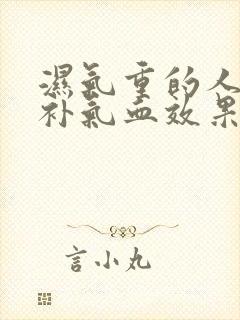 濕氣重的人
补氣血效果
言小丸